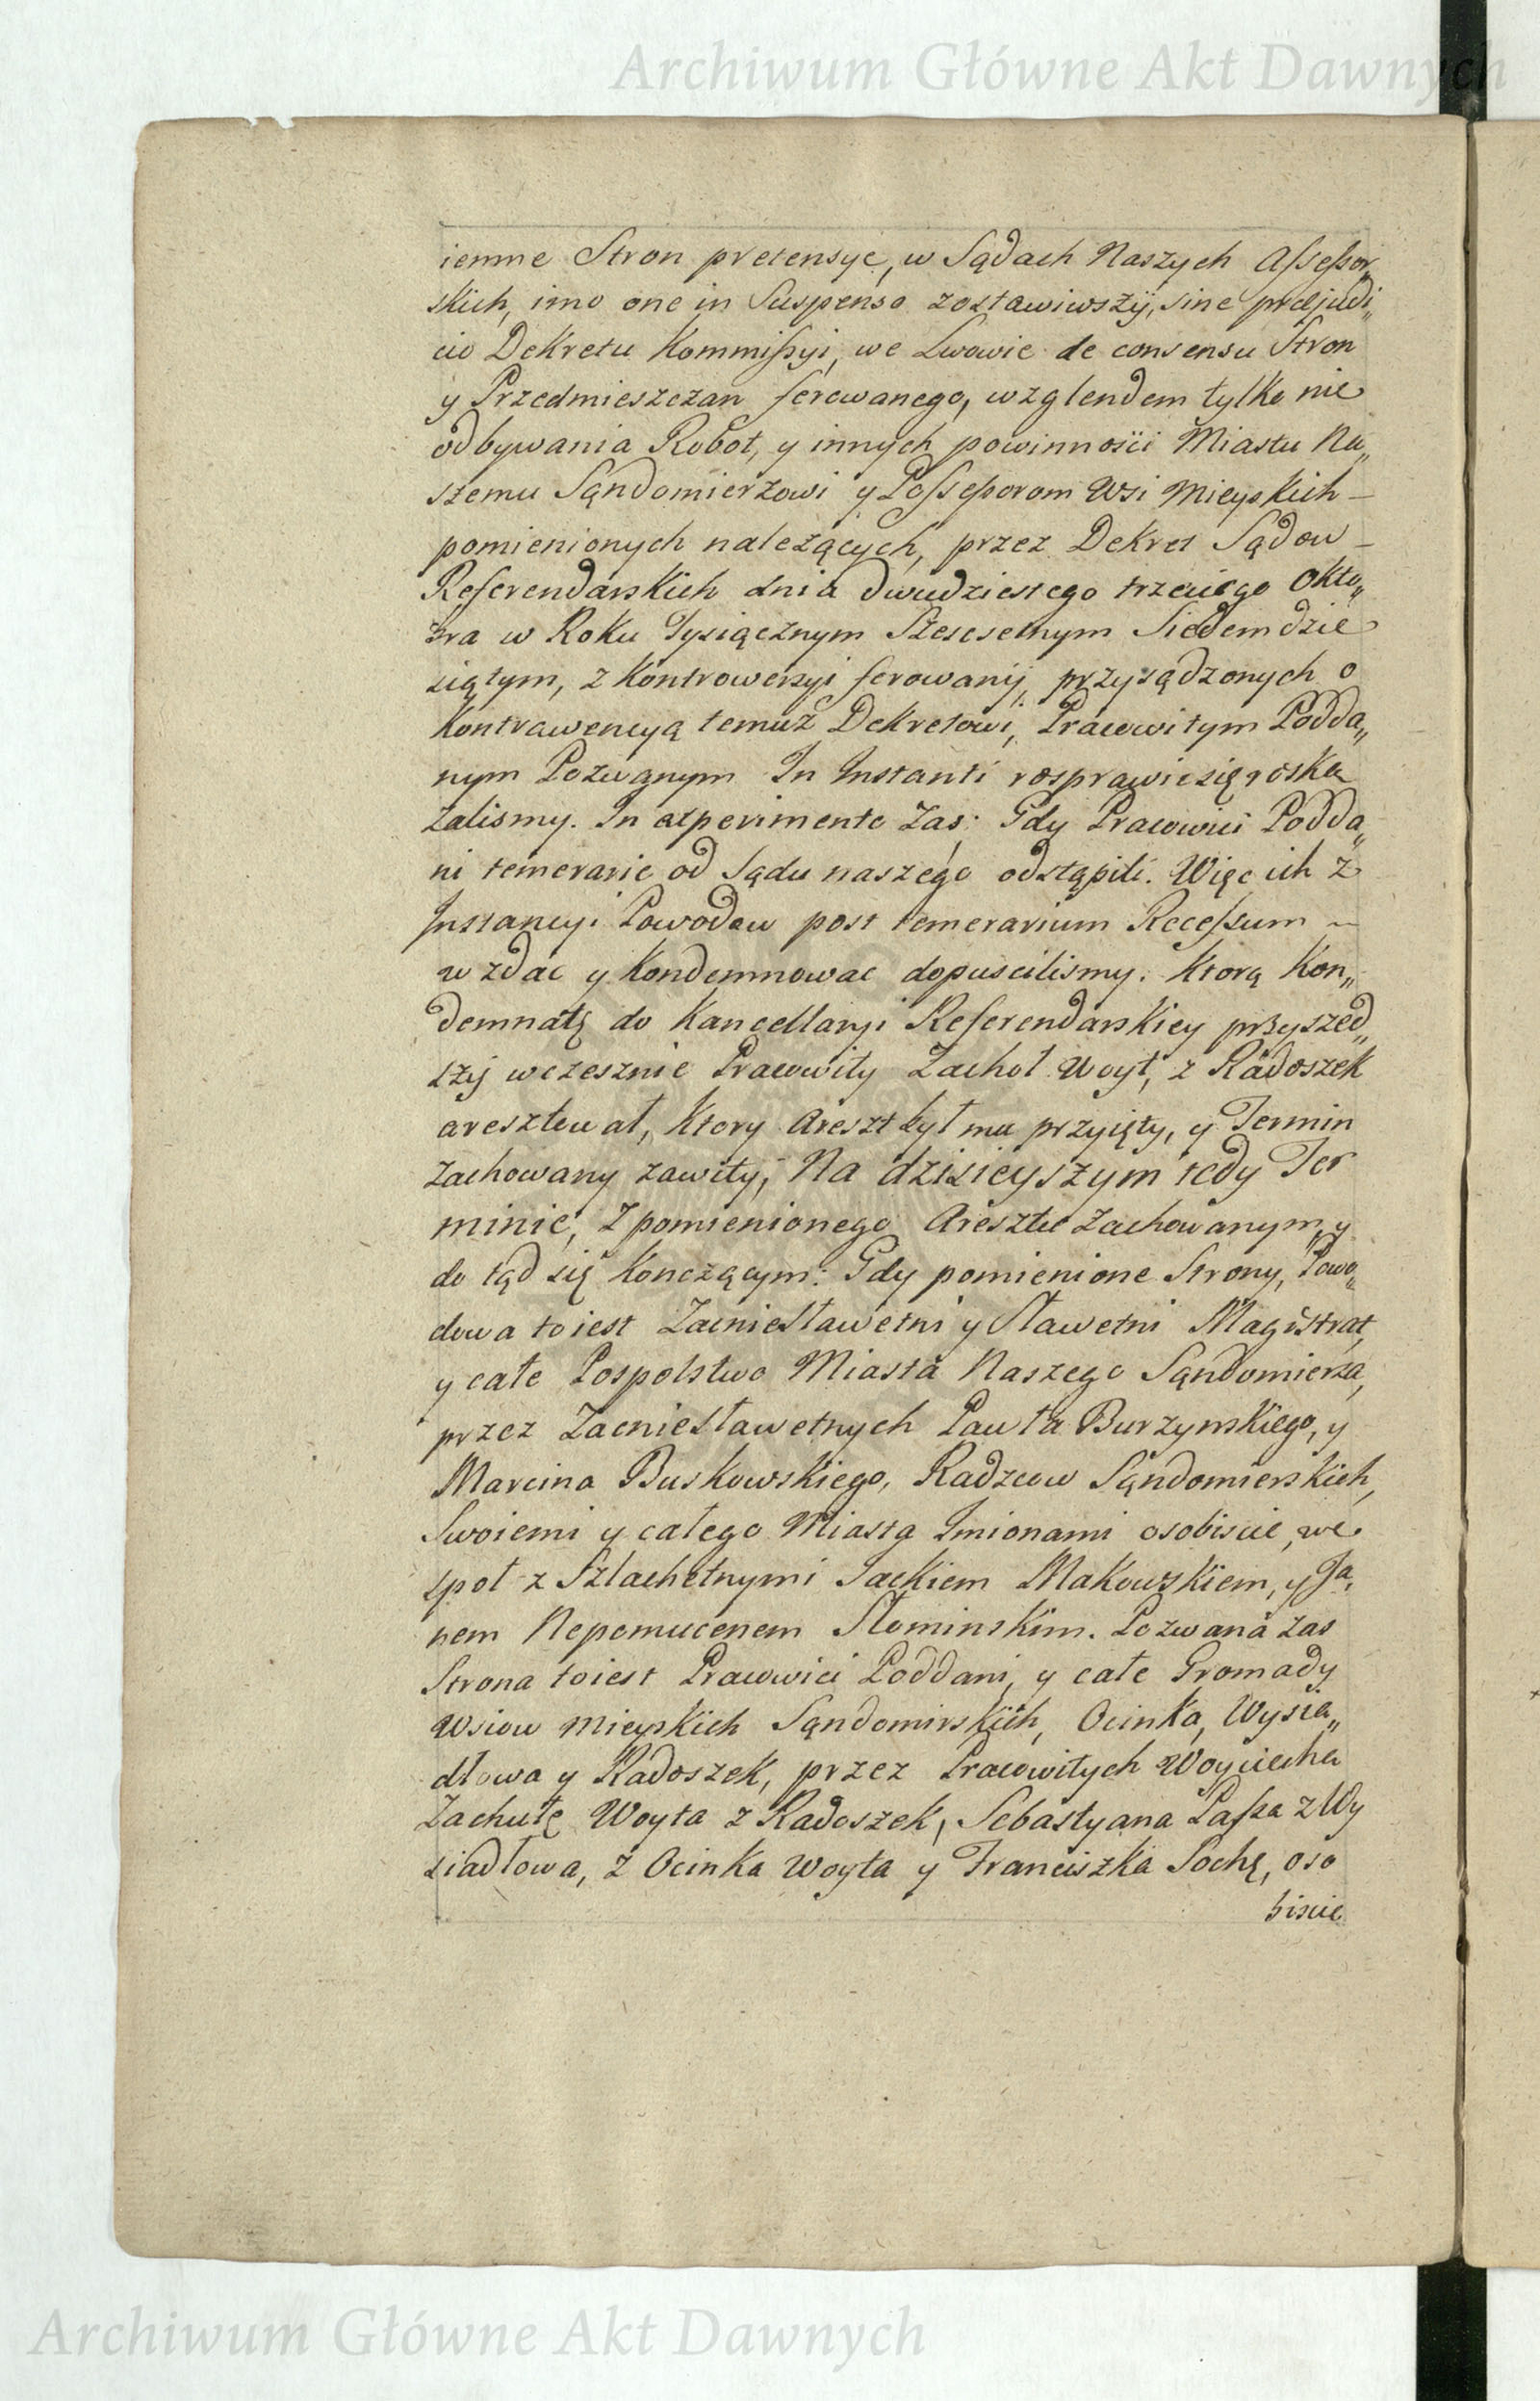 Archiwum Główne Akt Dawnych
iemne Stron pretensye, w Sądach Naszych Assessor„
skich, imo one in Suspenso zostawiwszy, sine præjudi„
cio Dekretu Kommissyi, we Lwowie de consensu Stron
y Przedmieszczan ferowanego, wzglendem tylko nie
odbywania Robot, y innych powinności Miastu Na„
szemu Sąndomierzowi y Possessorom Wsi Mieyskich –
pomienionych należących, przez Dekret Sądow –
Referendarskich dnia dwudziestego trzeciego Okto„
bra w Roku Tysiącznym Szescsetnym Siedemdzie
siątym, z Kontrowersyi ferowany, przysądzonych o
Kontrawencyą temuż Dekretowi, Pracowitym Podda„
nym Pozwanym In Instanti rosprawic się roska
zalismy. In experimento Zas: Gdy Pracowici Podda„
ni temerarie od Sądu naszego odstąpili. Więc ich z
Instancyi Powodow post temerarium Recessum ~
w zdac y Kondemnowac dopuscilismy. Ktorą Kon„
demnatę do Kancellaryi Referendarskiey przyszed„
szy wczesznie Pracowity Zachot Woyt, z Radoszek
aresztował, Ktory Areszt był mu przyięty, y Termin
Zachowany zawity, Na dzisieyszym tedy Ter
minie, z pomienionego Aresztu Zachowanym, y
do tąd się Kończącym: Gdy pomienione Strony, Powo„
dowa to iest Zacniesławetni y Sławetni Magistrat,
y całe Pospolstwo Miasta Naszego Sąndomierza,
przez Zacniesławetnych Pawła Burzynskiego, y
Marcina Buskowskiego, Radzcow Sąndomierskich,
Swoiemi y całego Miasta Imionami osobiscie, we
społ z Szlachetnymi Jackiem Makowskiem, y Ja„
nem Nepomucenem Słominskim. Pozwana zas
Strona to iest Pracowici Poddani, y całe Gromady
Wsiow Mieyskich Sąndomirskich, Ocinka, Wysia„
dłowa y Radoszek, przez Pracowitych Woyciecha
Zachutę Woyta z Radoszek, Sebastyana Passa z Wy
siadłowa, z Ocinka Woyta y Franciszka Sochę, oso
biscie
Archiwum Główne Akt Dawnych